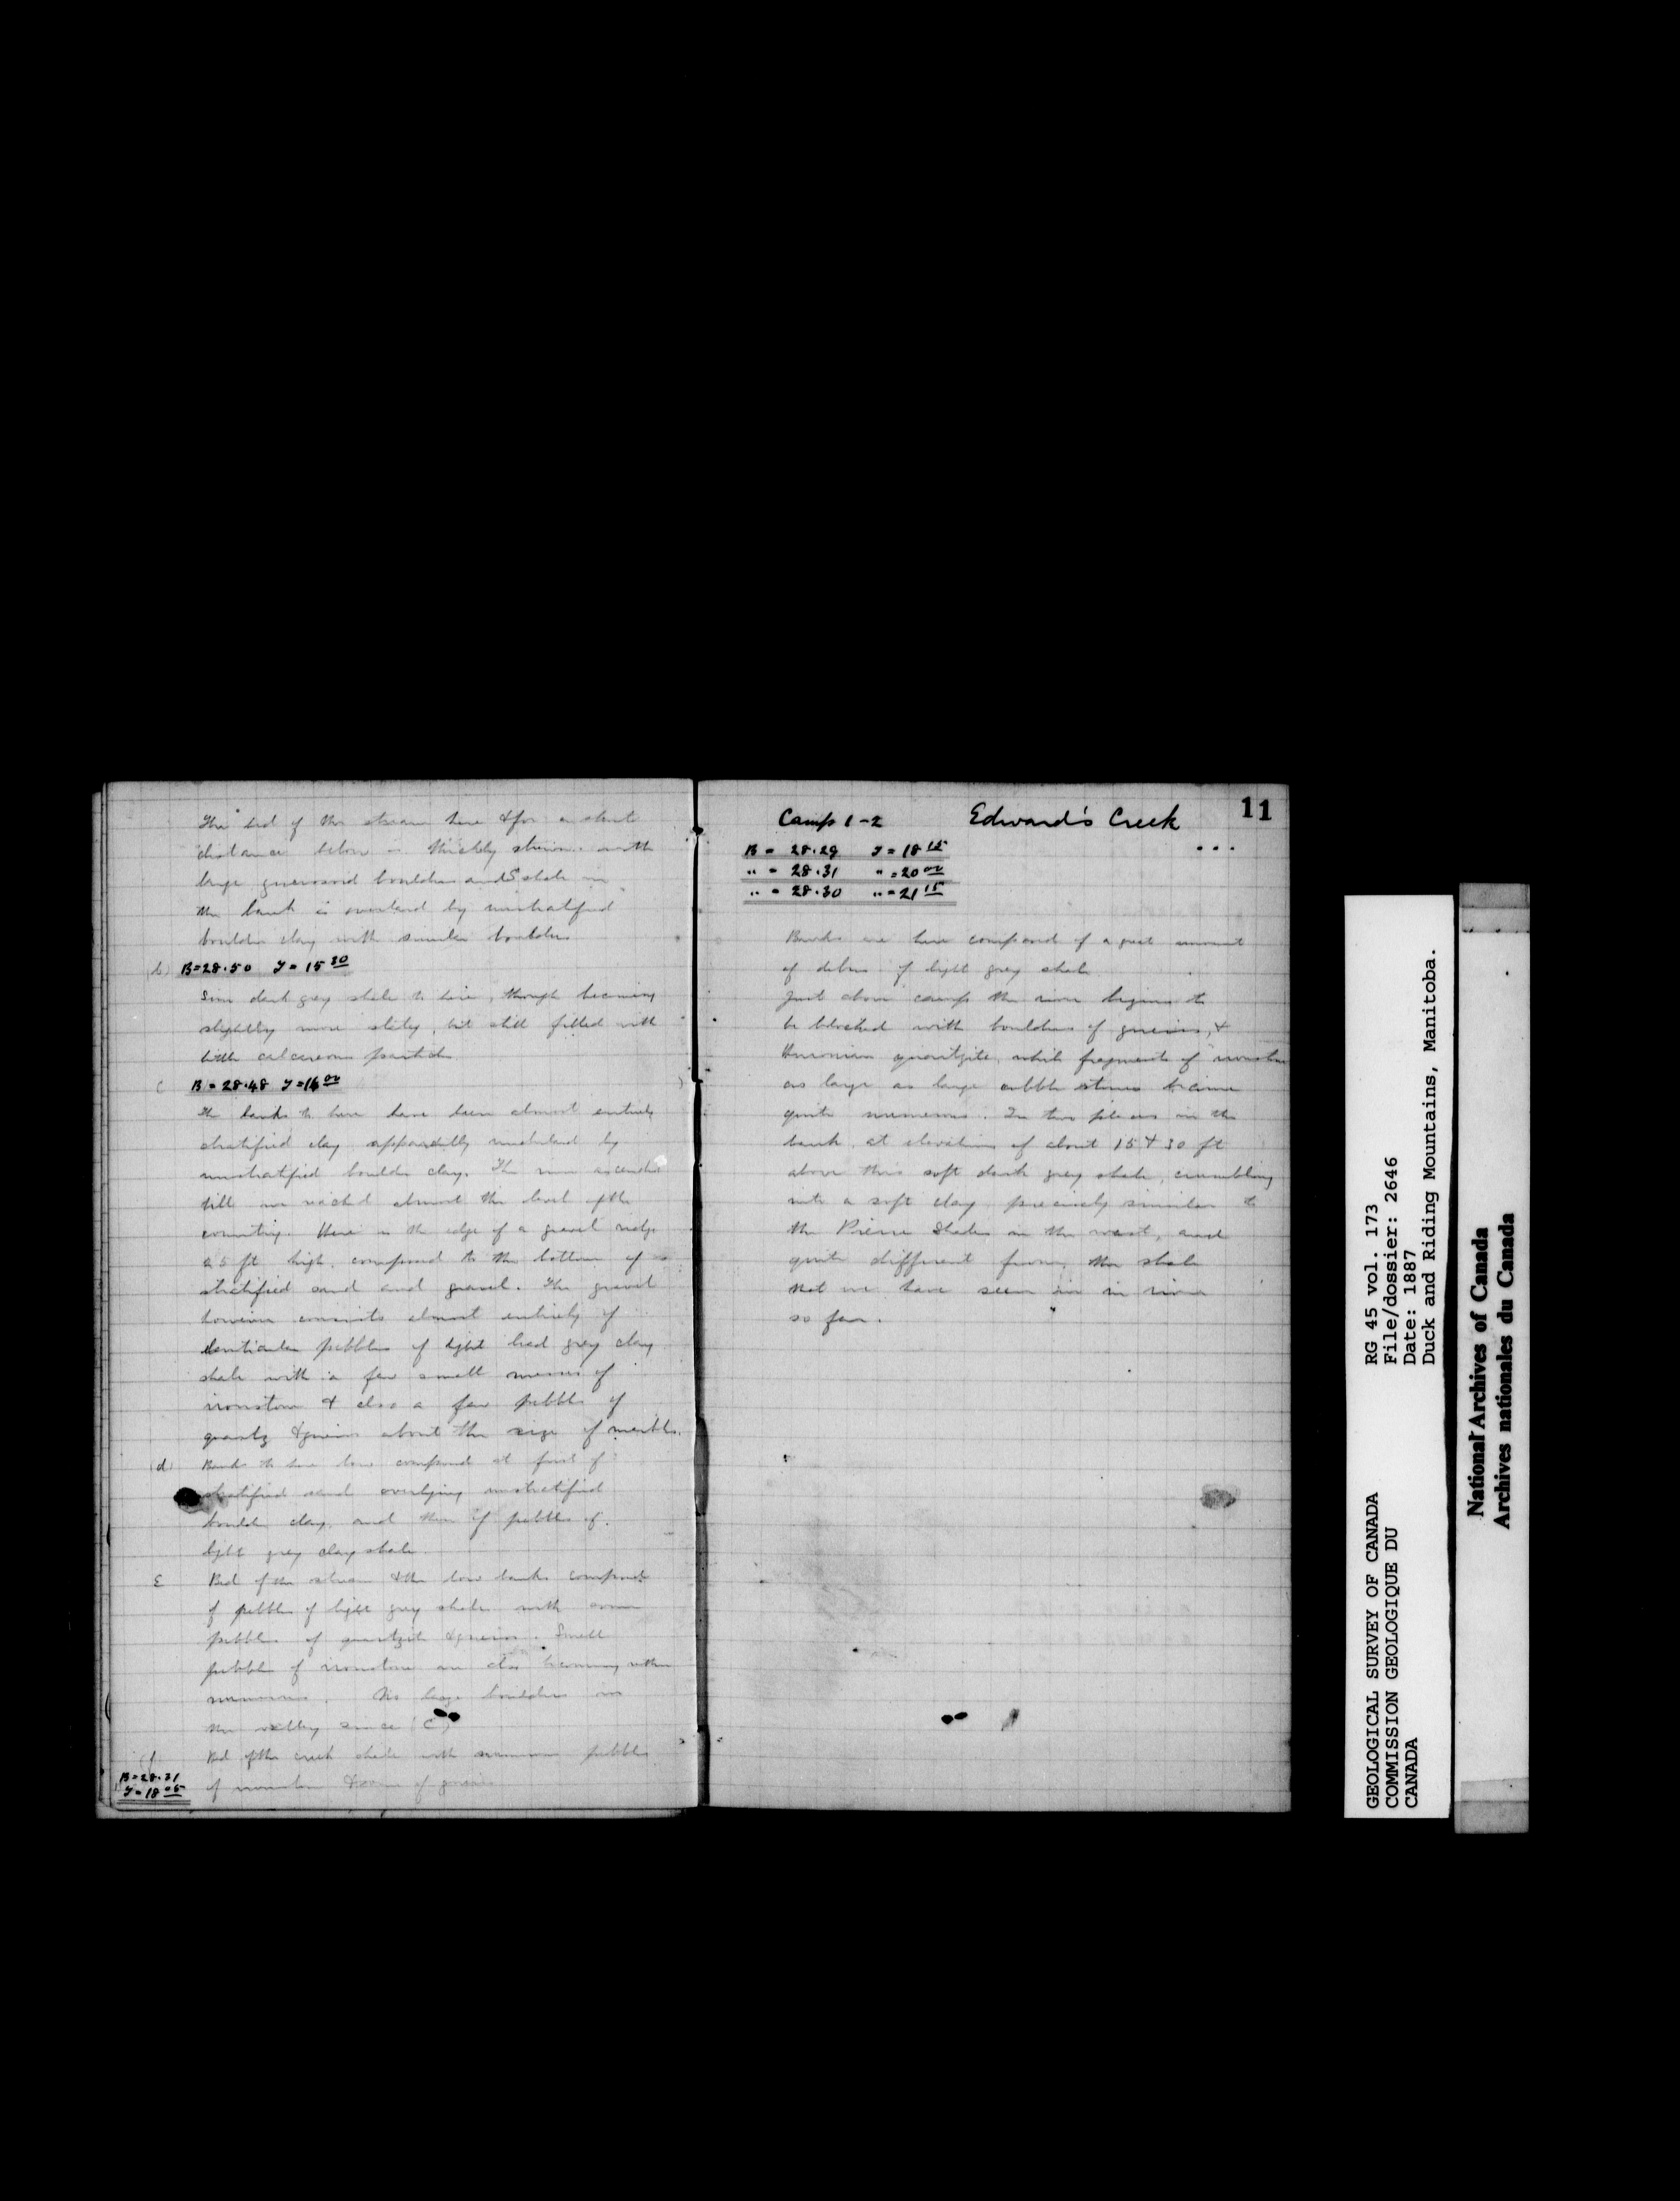 The bed of the stream here & for a short
distance below is thickly strewn with
large gneissoid boulders and shale in
the bank is overlaid by unstratified
boulder clay with similar boulders
(b) B=28.50 T=15 30
Same dark grey shale to here, though becoming
slightly more slaty, but still filled with
little calcareous particles
C B=28.48 T=16 00
The banks to here have been almost entirely
stratified clay apparently underlaid by
unstratified boulder clay. The river ascends
till we reached almost the level of the
country. Here is the edge of a gravel ridge
25 ft high, composed to the bottom of
stratified sand and gravel. The gravel
however consists almost entirely of
lenticular pebbles of light lead grey clay
shale with a few small masses of
ironstone & also a few pebbles of
quartz & gneiss about the size of marbles.
(d) Banks to here low composed at first of
stratified sand overlying unstratified
boulder clay, and then of pebbles of
light grey clay shale.
E Bed of the stream & the low banks composed
of pebbles of light grey shale with some
pebbles of quartzite & gneiss. Small
pebbles of ironstone are also becoming rather
numerous. No large boulders in
the valley since (C)
(f) Bed of the creek shale with numerous pebbles
of ironstone & some of gneiss
B=28.31
T=18 05
Camp 1-2 Edward's Creek 11
B = 28.29 T = 18 15
" = 28.31 " = 20 00
" = 28.30 " = 21 15
Banks are here composed of a great amount
of debris of light grey shale
Just above camp the river begins to
be blocked with boulders of gneiss, &
Huronian quartzite, while fragments of ironstone
as large as large cobble stones became
quite numerous. In two places in the
bank, at elevations of about 15 & 30 ft
above this soft dark grey shale, crumbling
into a soft clay precisely similar to
the Pierre Shales in the west, and
quite different from the shale
that we have seen in river
so far.
GEOLOGICAL SURVEY OF CANADA
COMMISSION GEOLOGIQUE DU
CANADA
RG 45 vol. 173
File/dossier: 2646
Date: 1887
Duck and Riding Mountains, Manitoba.
National Archives of Canada
Archives nationales du Canada